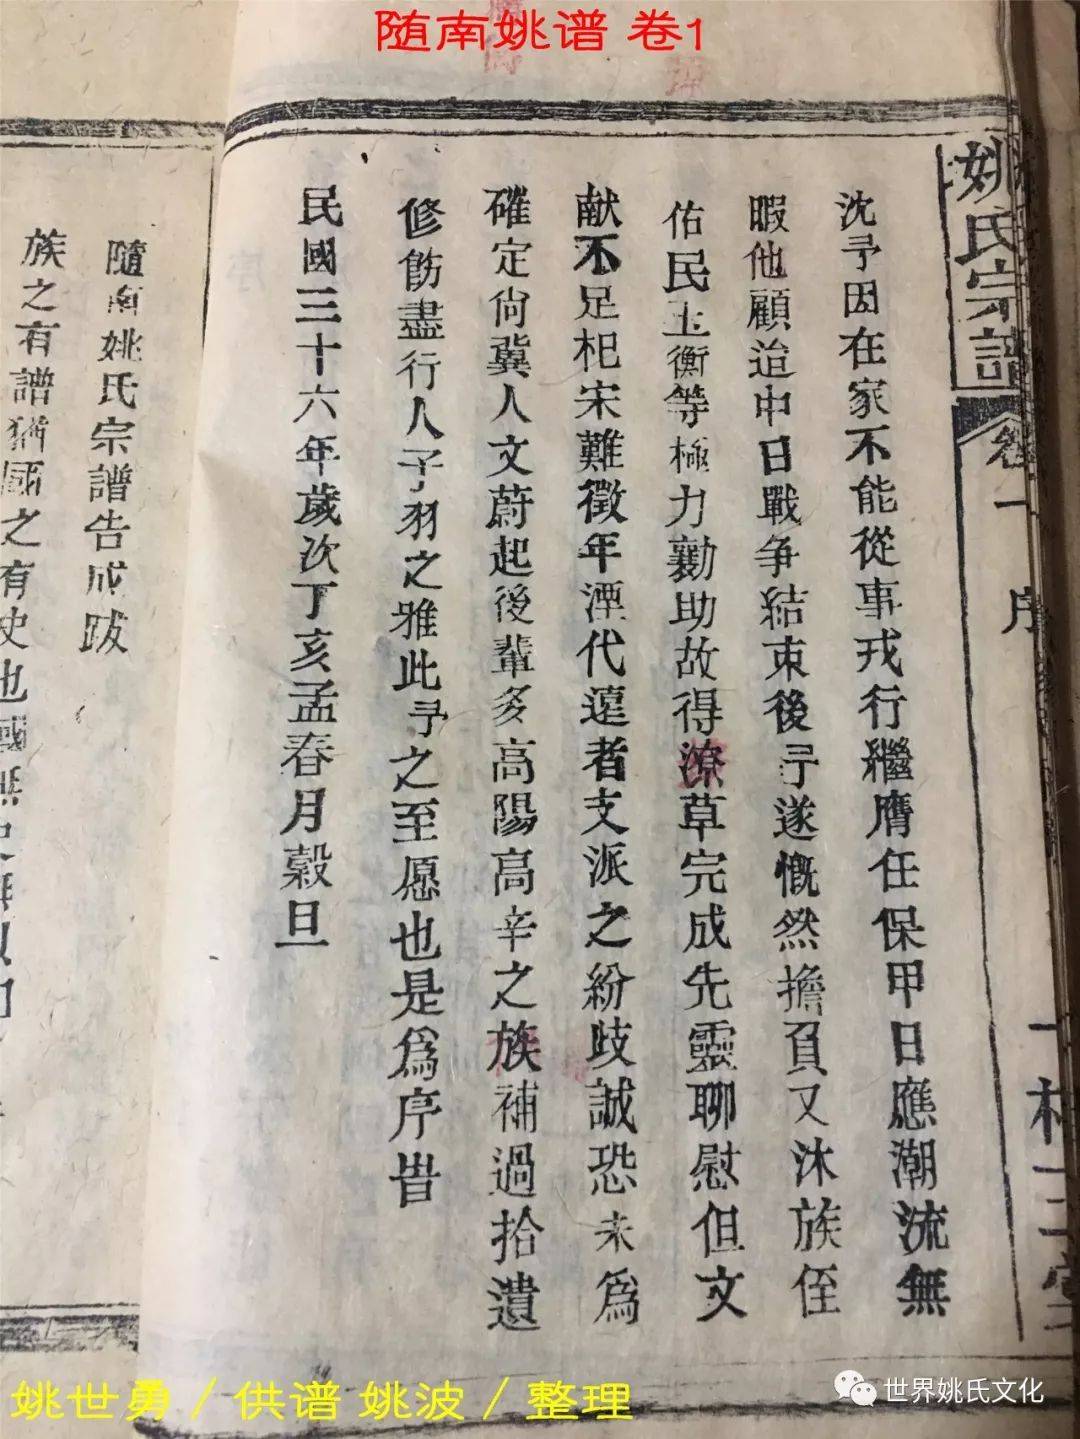 随南姚谱 卷1
姚氏宗譜
卷一 序
沈予因在家不能從事戎行繼膺任保甲日應潮流無
暇他顧迨中日戰争結束後予遂慨然擔負又沐族侄
佑民玉衡等極力勷助故得潦草完成先靈聊慰但文
献不足杞宋難徵年湮代遠者支派之紛歧誠恐未爲
確定尙冀人文蔚起後輩多高陽高辛之族補過拾遺
修飭盡行人子羽之雅此予之至愿也是爲序旹
民國三十六年歲次丁亥孟春月穀旦
隨南姚氏宗譜告成跋
族之有譜猶國之有史也國無史
姚世勇／供谱 姚波／整理
世界姚氏文化